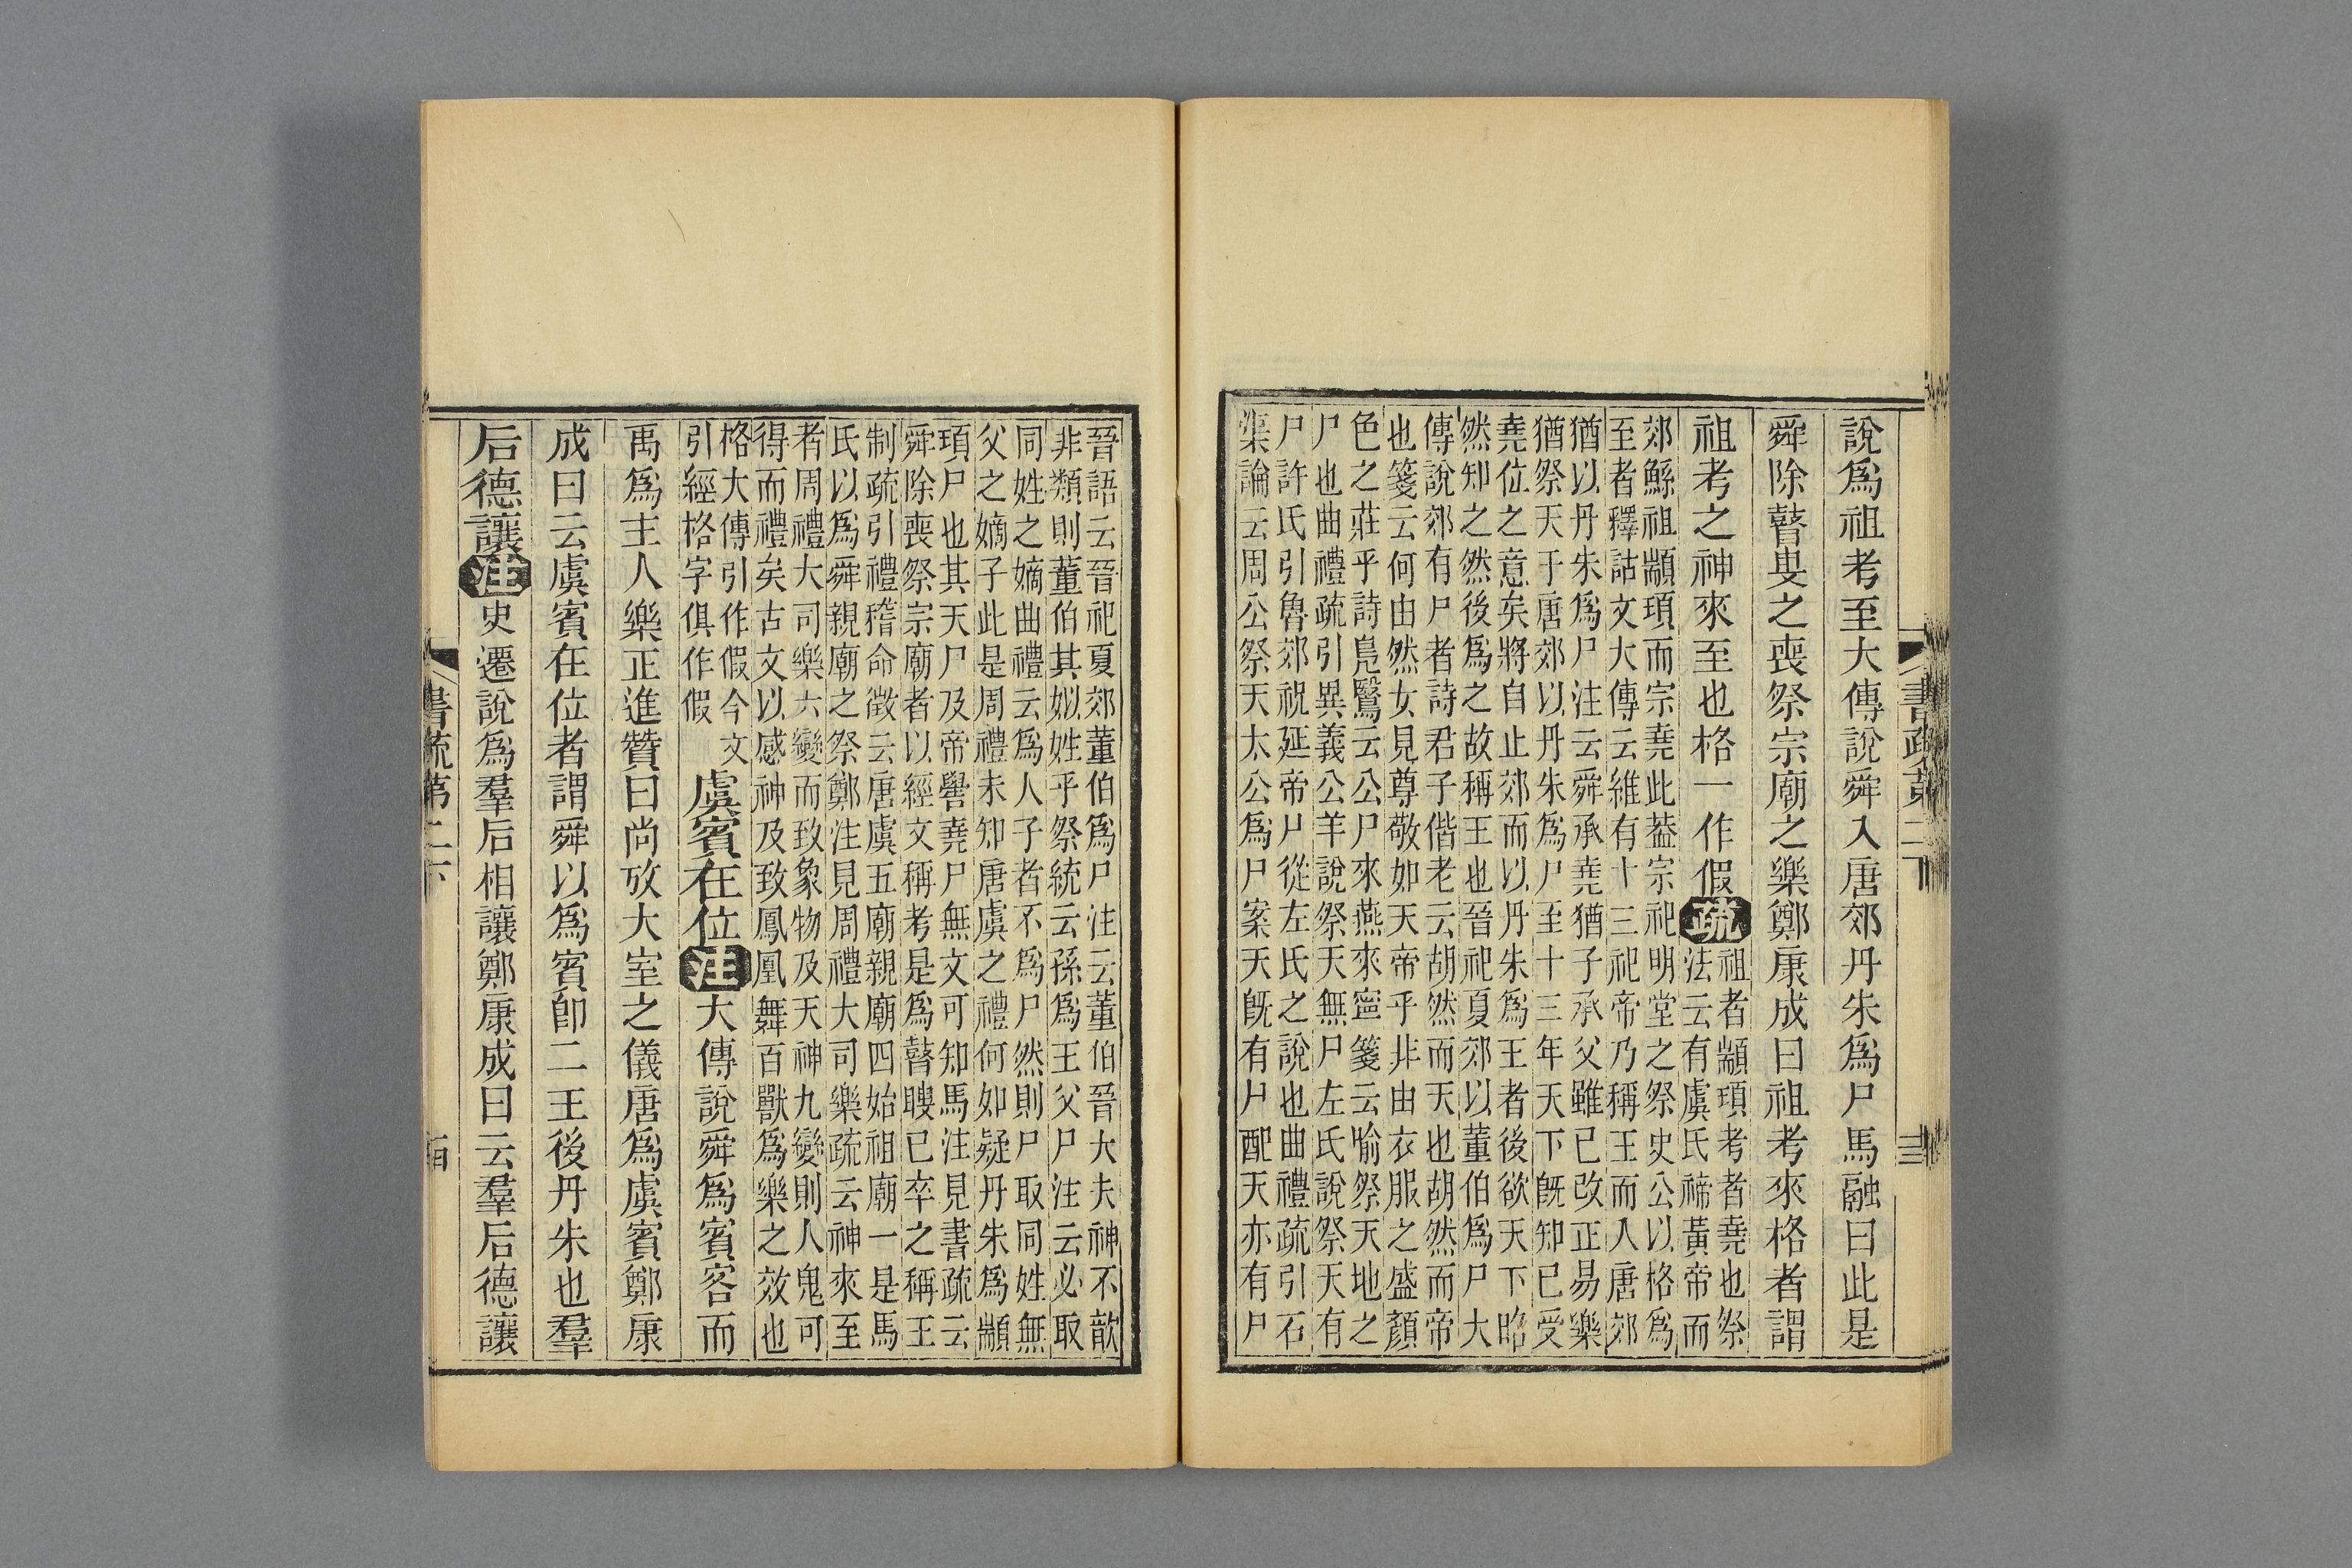 書疏第二下
說爲祖考至大傳說舜入唐郊丹朱爲尸馬融曰此是
舜除瞽叟之喪祭宗廟之樂鄭康成曰祖考來格者謂
祖考之神來至也格一作假疏
祖者顓頊考者堯也祭
法云有虞氏禘黃帝而
郊鯀祖顓頊而宗堯此葢宗祀明堂之祭史公以格爲
至者釋詁文大傳云維有十三祀帝乃稱王而入唐郊
猶以丹朱爲尸注云舜承堯猶子承父雖已改正易樂
猶祭天于唐郊以丹朱爲尸至十三年天下旣知已受
堯位之意矣將自止郊而以丹朱爲王者後欲天下昭
然知之然後爲之故稱王也晉祀夏郊以董伯爲尸大
傳說郊有尸者詩君子偕老云胡然而天也胡然而帝
也箋云何由然女見尊敬如天帝乎非由衣服之盛顏
色之莊乎詩鳧鷖云公尸來燕來寧箋云喻祭天地之
尸也曲禮疏引異義公羊說祭天無尸左氏說祭天有
尸許氏引魯郊祝延帝尸從左氏之說也曲禮疏引石
渠論云周公祭天太公爲尸案天旣有尸配天亦有尸
晉語云晉祀夏郊董伯爲尸注云董伯晉大夫神不歆
非類則董伯其姒姓乎祭統云孫爲王父尸注云必取
同姓之嫡曲禮云爲人子者不爲尸然則尸取同姓無
父之嫡子此是周禮未知唐虞之禮何如疑丹朱爲顓
頊尸也其天尸及帝嚳堯尸無文可知馬注見書疏云
舜除喪祭宗廟者以經文稱考是爲瞽瞍已卒之稱王
制疏引禮稽命徵云唐虞五廟親廟四始祖廟一是馬
氏以爲舜親廟之祭鄭注見周禮大司樂疏云神來至
者周禮大司樂六變而致象物及天神九變則人鬼可
得而禮矣古文以感神及致鳳凰舞百獸爲樂之效也
格大傳引作假今文
引經格字俱作假
虞賓在位注大傳說舜爲賓客而
禹爲主人樂正進贊曰尚攷大室之儀唐爲虞賓鄭康
成曰云虞賓在位者謂舜以爲賓卽二王後丹朱也羣
后德讓注史遷說爲羣后相讓鄭康成曰云羣后德讓
書疏第二下